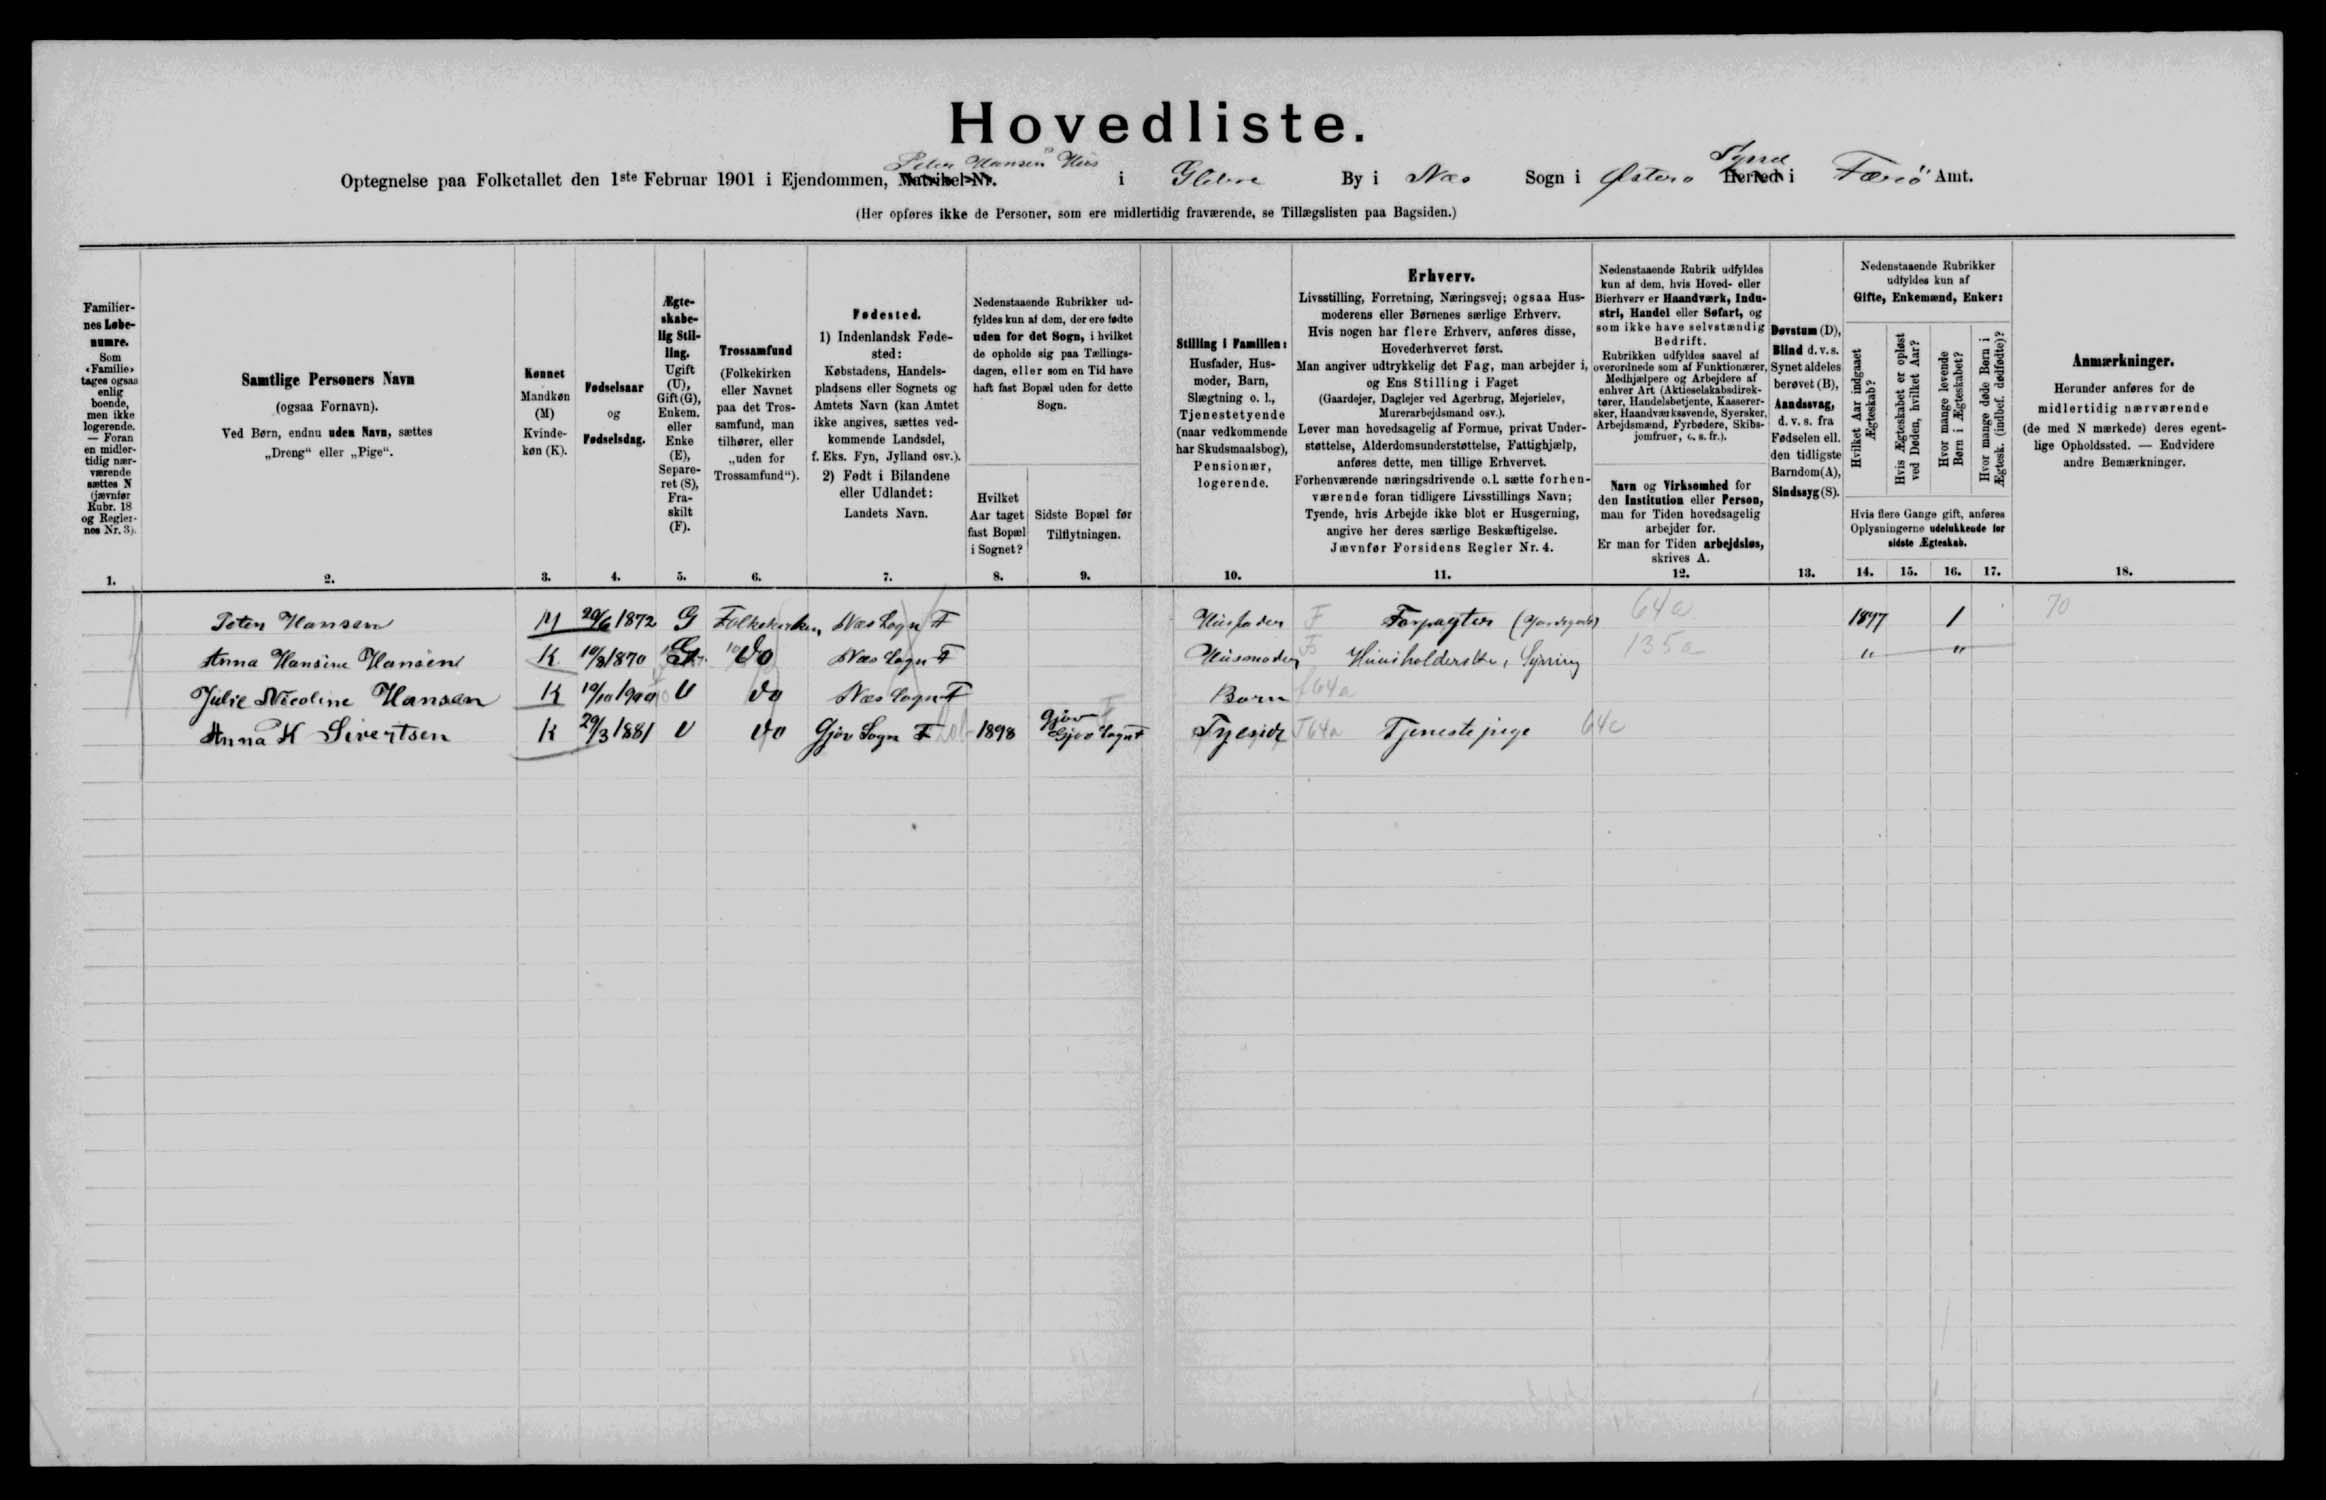 Hovedliste.
Peter Hansens Hus
Optegnelse paa Folketallet den 1ste Februar 1901 i Ejendommen, Matrikel-Nr. i By i Næs Sogn i Østerø Syssel Herred i Færø Amt.
(Her opføres ikke de Personer, som ere midlertidig fraværende, se Tillægslisten paa Bagsiden.)
Familier-
nes Løbe-
numre.
Som
«Familie»
tages ogsaa
enlig
boende,
men ikke
logerende.
— Foran
en midler-
tidig nær-
værende
sættes N
(jævnfør
Rubr. 18
og Regler-
nes Nr. 3).
1.
Samtlige Personers Navn
(ogsaa Fornavn).
Ved Børn, endnu uden Navn, sættes
„Dreng“ eller „Pige“.
2.
Kønnet
Mandkøn
(M)
Kvinde-
køn (K).
3.
Fødselsaar
og
Fødselsdag.
4.
Ægte-
skabe-
lig Stil-
ling.
Ugift
(U),
Gift (G),
Enkem.
eller
Enke
(E),
Separe-
ret (S),
Fra-
skilt
(F).
5.
Trossamfund
(Folkekirken
eller Navnet
paa det Tros-
samfund, man
tilhører, eller
„uden for
Trossamfund“).
6.
Fødested.
1) Indenlandsk Føde-
sted:
Købstadens, Handels-
pladsens eller Sognets og
Amtets Navn (kan Amtet
ikke angives, sættes ved-
kommende Landsdel,
f. Eks. Fyn, Jylland osv.).
2) Født i Bilandene
eller Udlandet:
Landets Navn.
7.
Nedenstaaende Rubrikker ud-
fyldes kun af dem, der ere fødte
uden for det Sogn, i hvilket
de opholde sig paa Tællings-
dagen, eller som en Tid have
haft fast Bopæl uden for dette
Sogn.
Hvilket
Aar taget
fast Bopæl
i Sognet?
8.
Sidste Bopæl før
Tilflytningen.
9.
Stilling i Familien:
Husfader, Hus-
moder, Barn,
Slægtning o. l.,
Tjenestetyende
(naar vedkommende
har Skudsmaalsbog),
Pensionær,
logerende.
10.
Erhverv.
Livsstilling, Forretning, Næringsvej; ogsaa Hus-
moderens eller Børnenes særlige Erhverv.
Hvis nogen har flere Erhverv, anføres disse,
Hovederhvervet først.
Man angiver udtrykkelig det Fag, man arbejder i,
og Ens Stilling i Faget
(Gaardejer, Daglejer ved Agerbrug, Mejerielev,
Murerarbejdsmand osv.).
Lever man hovedsagelig af Formue, privat Under-
støttelse, Alderdomsunderstøttelse, Fattighjælp,
anføres dette, men tillige Erhvervet.
Forhenværende næringsdrivende o. l. sætte forhen-
værende foran tidligere Livsstillings Navn;
Tyende, hvis Arbejde ikke blot er Husgerning,
angive her deres særlige Beskæftigelse.
Jævnfør Forsidens Regler Nr. 4.
11.
Nedenstaaende Rubrik udfyldes
kun af dem, hvis Hoved- eller
Bierhverv er Haandværk, Indu-
stri, Handel eller Søfart, og
som ikke have selvstændig
Bedrift.
Rubrikken udfyldes saavel af
overordnede som af Funktionærer,
Medhjælpere og Arbejdere af
enhver Art (Aktieselskabsdirek-
tører, Handelsbetjente, Kasserer-
sker, Haandværkssvende, Syersker,
Arbejdsmænd, Fyrbødere, Skibs-
jomfruer, o. s. fr.).
Navn og Virksomhed for
den Institution eller Person,
man for Tiden hovedsagelig
arbejder for.
Er man for Tiden arbejdsløs,
skrives A.
12.
Døvstum (D),
Blind d. v. s.
Synet aldeles
berøvet (B),
Aandssvag,
d. v. s. fra
Fødselen ell.
den tidligste
Barndom (A),
Sindssyg (S).
13.
Nedenstaaende Rubrikker
udfyldes kun af
Gifte, Enkemænd, Enker:
Hvilket Aar indgaaet
Ægteskab?
Hvis Ægteskabet er opløst
ved Døden, hvilket Aar?
Hvor mange levende
Børn i Ægteskabet?
Hvor mange døde Børn i
Ægtesk. (indbef. dødfødte)?
Hvis flere Gange gift, anføres
Oplysningerne udelukkende for
sidste Ægteskab.
14. 15. 16. 17.
Anmærkninger.
Herunder anføres for de
midlertidig nærværende
(de med N mærkede) deres egent-
lige Opholdssted. — Endvidere
andre Bemærkninger.
18.
Peter Hansen M 20/6 1872 G Folkekirken Næs Sogn F Husfader F Forpagter 64a 1897 1 70
Anna Hansine Hansen K 10/8 1870 G do Næs Sogn F Husmoder F Huusholderske, Syning 135a " "
Julie Nicoline Hansen K 10/10 1900 U do Næs Sogn F Barn f64a
Anna K Sivertsen K 29/3 1881 U do Gjov Sogn F 1898 Gjov Gjov Sogn F Tyende T64a Tjenestepige 64c